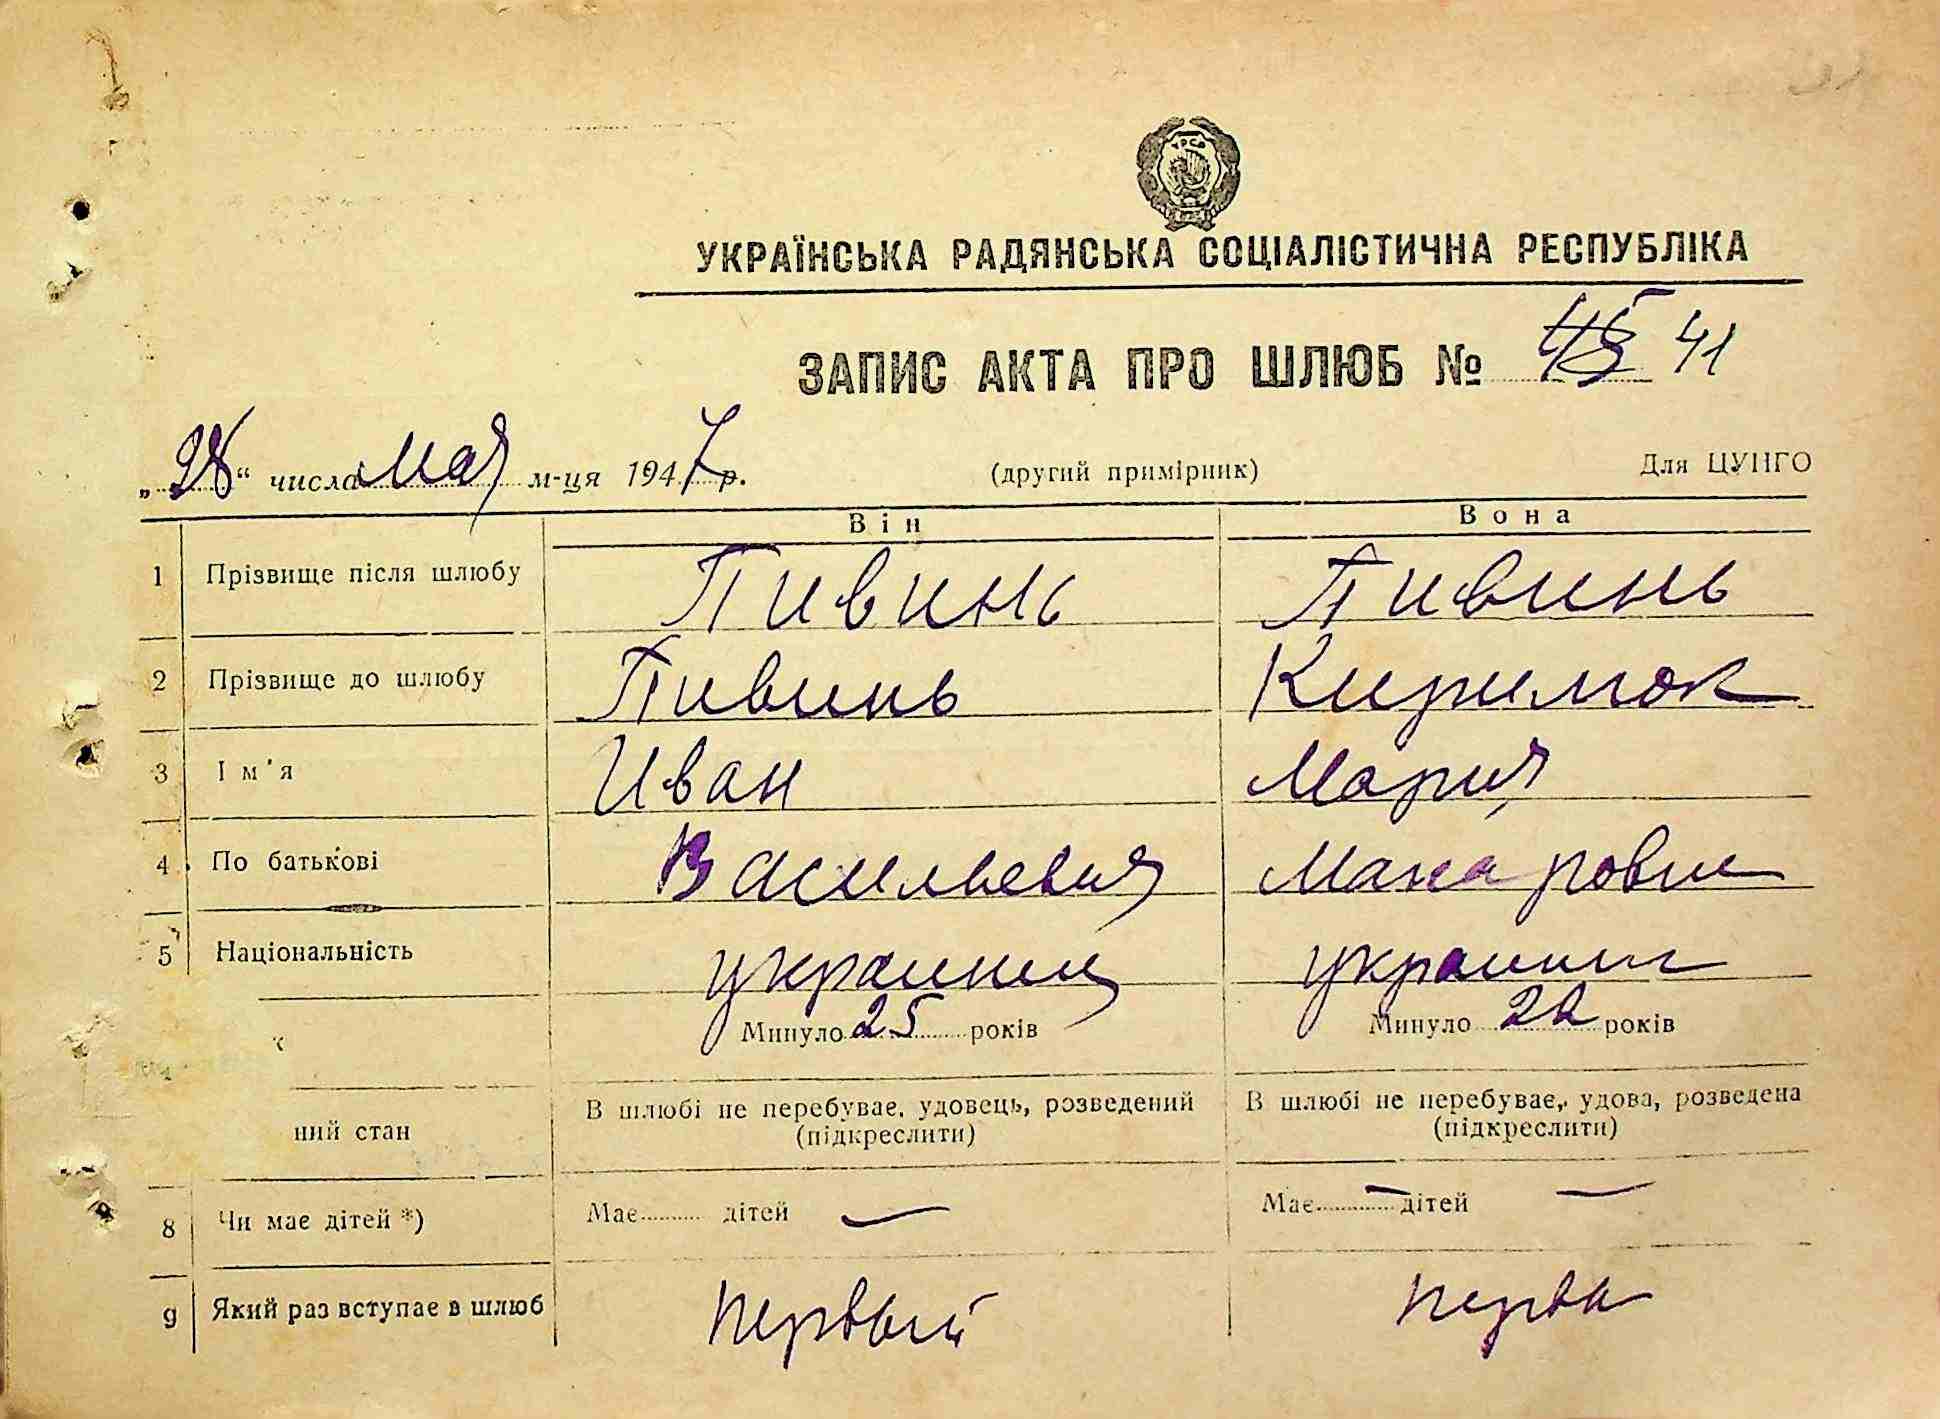 УРСР
УКРАЇНСЬКА РАДЯНСЬКА СОЦІАЛІСТИЧНА РЕСПУБЛІКА
ЗАПИС АКТА ПРО ШЛЮБ № 45 41
„28“ числа мая м-ця 1947 р. (другий примірник) Для ЦУНГО
Він Вона
1 Прізвище після шлюбу Пивинь Пивинь
2 Прізвище до шлюбу Пивинь
3 Ім'я Иван Мария
4 По батькові Васильевич Макаровне
5 Національність украинец
Минуло 25 років Минуло 22 років
В шлюбі не перебуває, удовець, розведений В шлюбі не перебуває, удова, розведена
ний стан (підкреслити) (підкреслити)
8 Чи має дітей *) Має дітей — Має — дітей —
9 Який раз вступає в шлюб первый перва